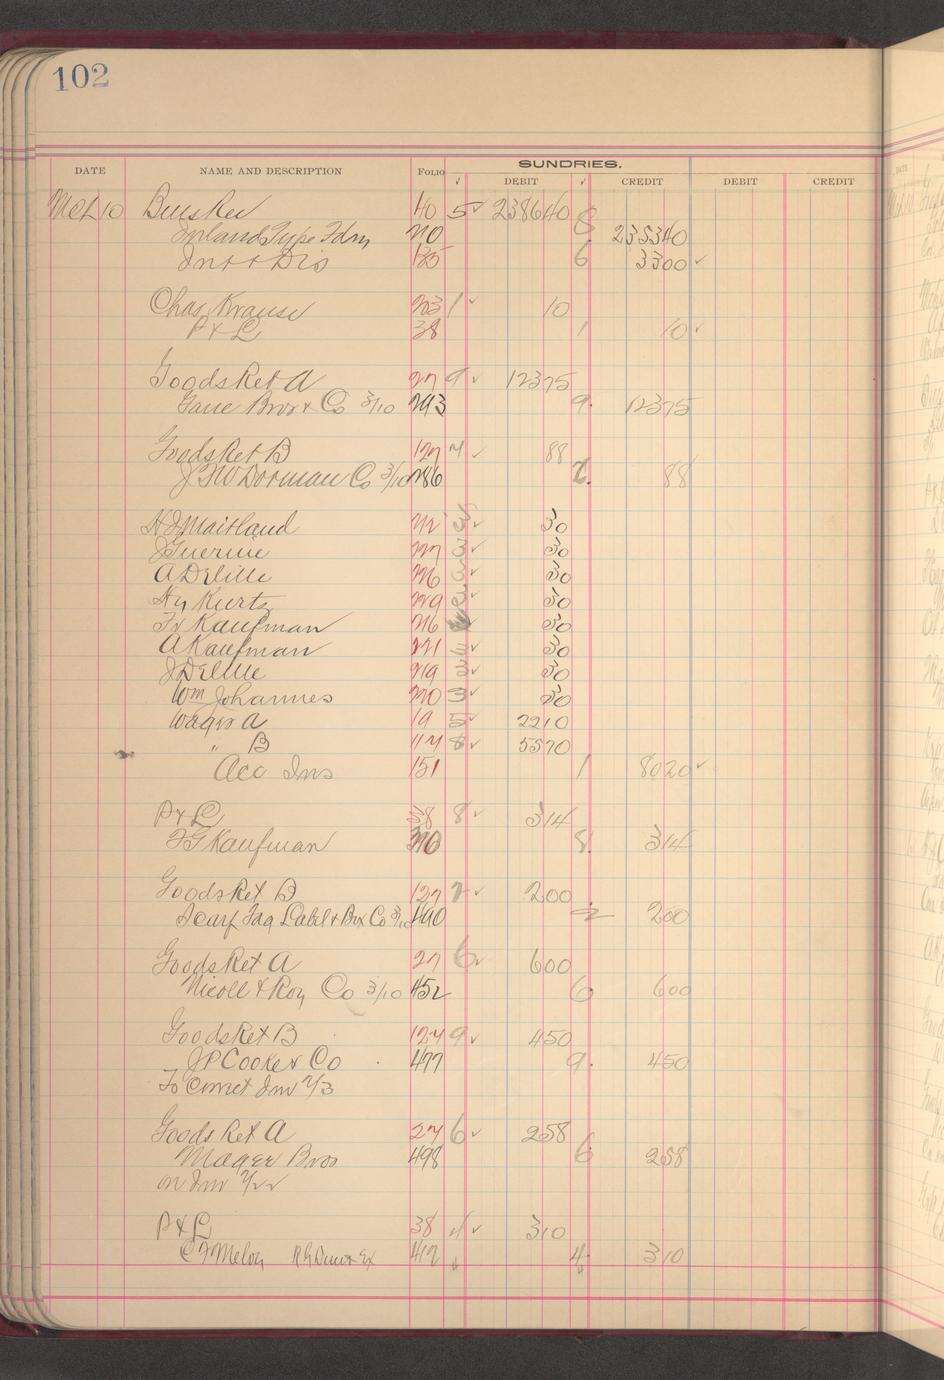 102
SUNDRIES.
DATE NAME AND DESCRIPTION FOLIO √ DEBIT √ CREDIT DEBIT CREDIT
Mch 10 Bills Rec 40 5 ✓ 238640 8
Inland Type Fdry 235340
Int & Dis 6 3300 ✓
Chas Krause 1 ✓ 10
P & L 38 1 10 ✓
Goods Ret A 27 9 ✓ 12375
Bros & Co 3/10 9. 12375
Goods Ret B 127 ✓ 88
J F W Dorman Co 3/10 88
H J Maitland ✓ 30
J Guerine 3 ✓ 30
A Delille 3 ✓ 30
Hy Kurtz ✓ 30
Fr Kaufman ✓ 30
A Kaufman ✓ 30
J Delille 3 ✓ 30
Wm Johannes 3 ✓ 30
Wages A 19 5 ✓ 2210
" B 8 ✓ 5570
Acc Ins 151 1 8020 ✓
P & L 38 8 ✓ 314
F G Kaufman 8. 314
Goods Ret B 127 2 ✓ 200
Tag Label & Box Co 3/10 490 2 200
Goods Ret A 27 6 ✓ 600
Nicoll & Roy Co 3/10 452 6 600
Goods Ret B 127 9 ✓ 450
J P Cooke & Co 477 9. 450
To Correct Inv 2/3
Goods Ret A 27 6 ✓ 258
Mager Bros 498 6 258
on Inv
P & L 38 4 ✓ 310
C F Meloy 4. 310